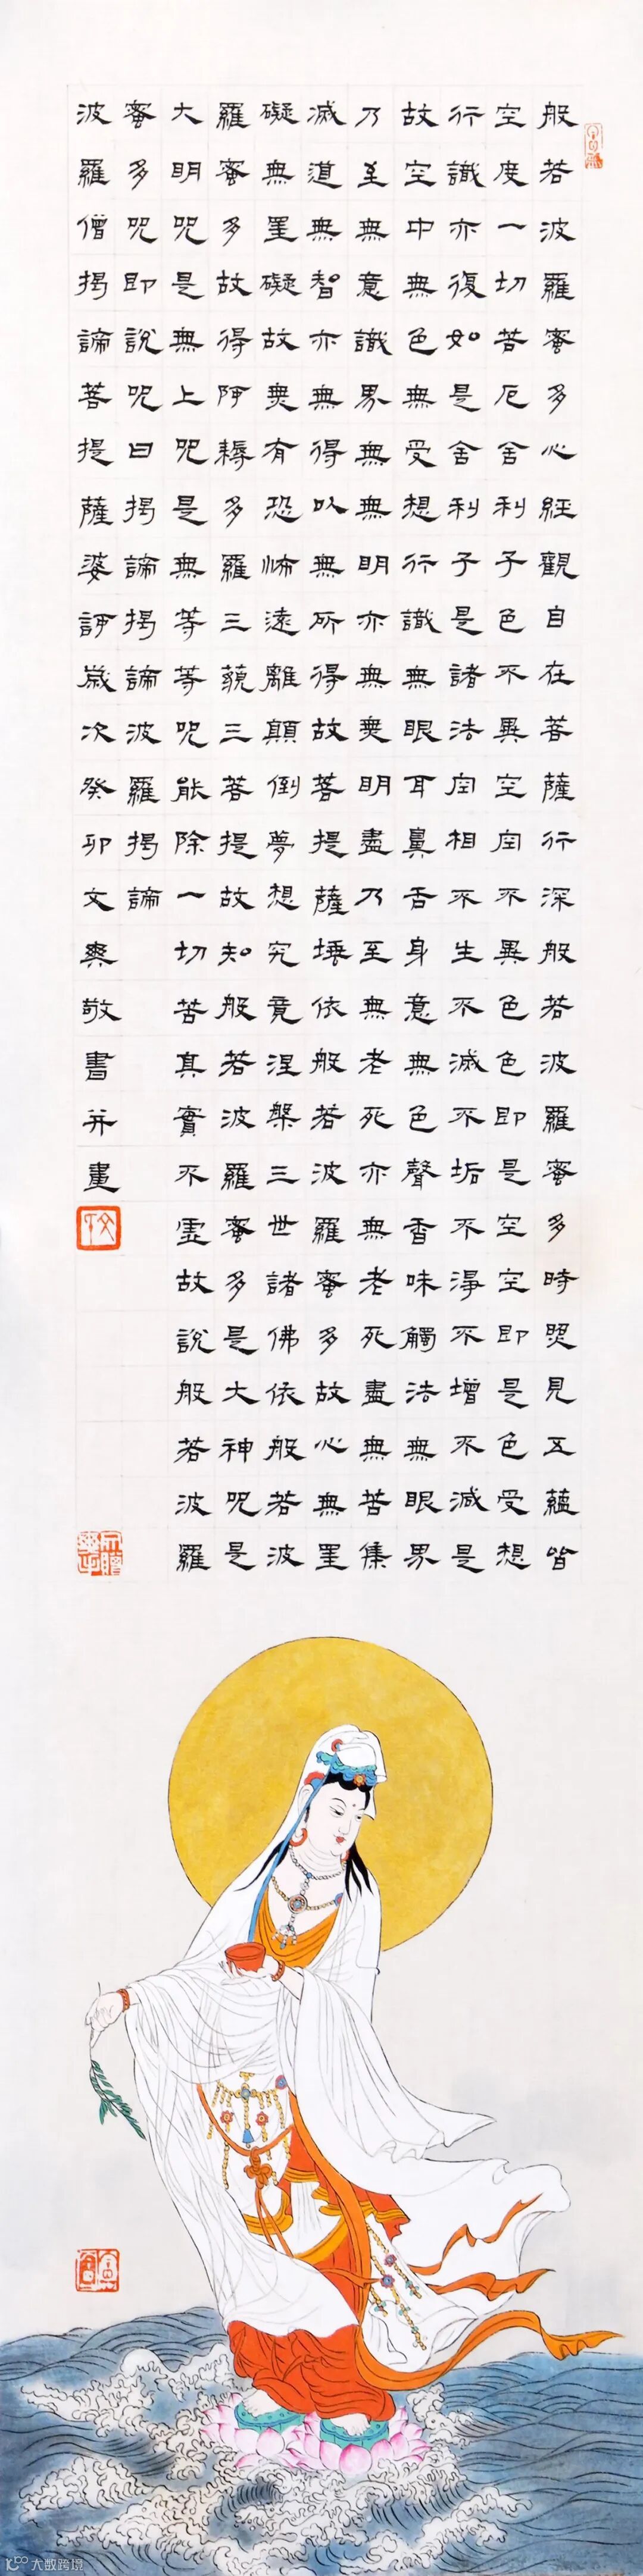 般若波羅蜜多心經觀自在菩薩行深般若波羅蜜多時照見五蘊皆
空度一切苦厄舍利子色不異空空不異色色即是空空即是色受想
行識亦復如是舍利子是諸法空相不生不滅不垢不淨不增不減是
故空中無色無受想行識無眼耳鼻舌身意無色聲香味觸法無眼界
乃至無意識界無無明亦無無明盡乃至無老死亦無老死盡無苦集
滅道無智亦無得以無所得故菩提薩埵依般若波羅蜜多故心無罣
礙無罣礙故無有恐怖遠離顛倒夢想究竟涅槃三世諸佛依般若波
羅蜜多故得阿耨多羅三藐三菩提故知般若波羅蜜多是大神呪是
大明呪是無上呪是無等等呪能除一切苦真實不虛故說般若波羅
蜜多呪即說呪曰揭諦揭諦波羅揭諦
波羅僧揭諦菩提薩婆訶歲次癸卯文爽敬書并畫
大数跨境